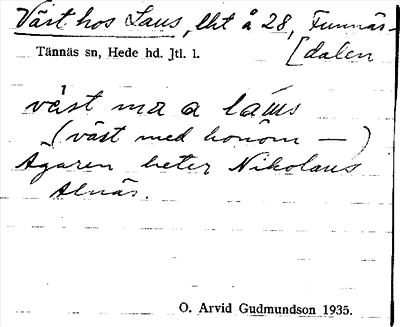 Väst hos Laus, lht å 28, Funnäs-
[dalen
Tännäs sn, Hede hd. Jtl. l.
väst ma a láus
(väst med honom —)
Ägaren heter Nikolaus
Alnäs.
O. Arvid Gudmundson 1935.